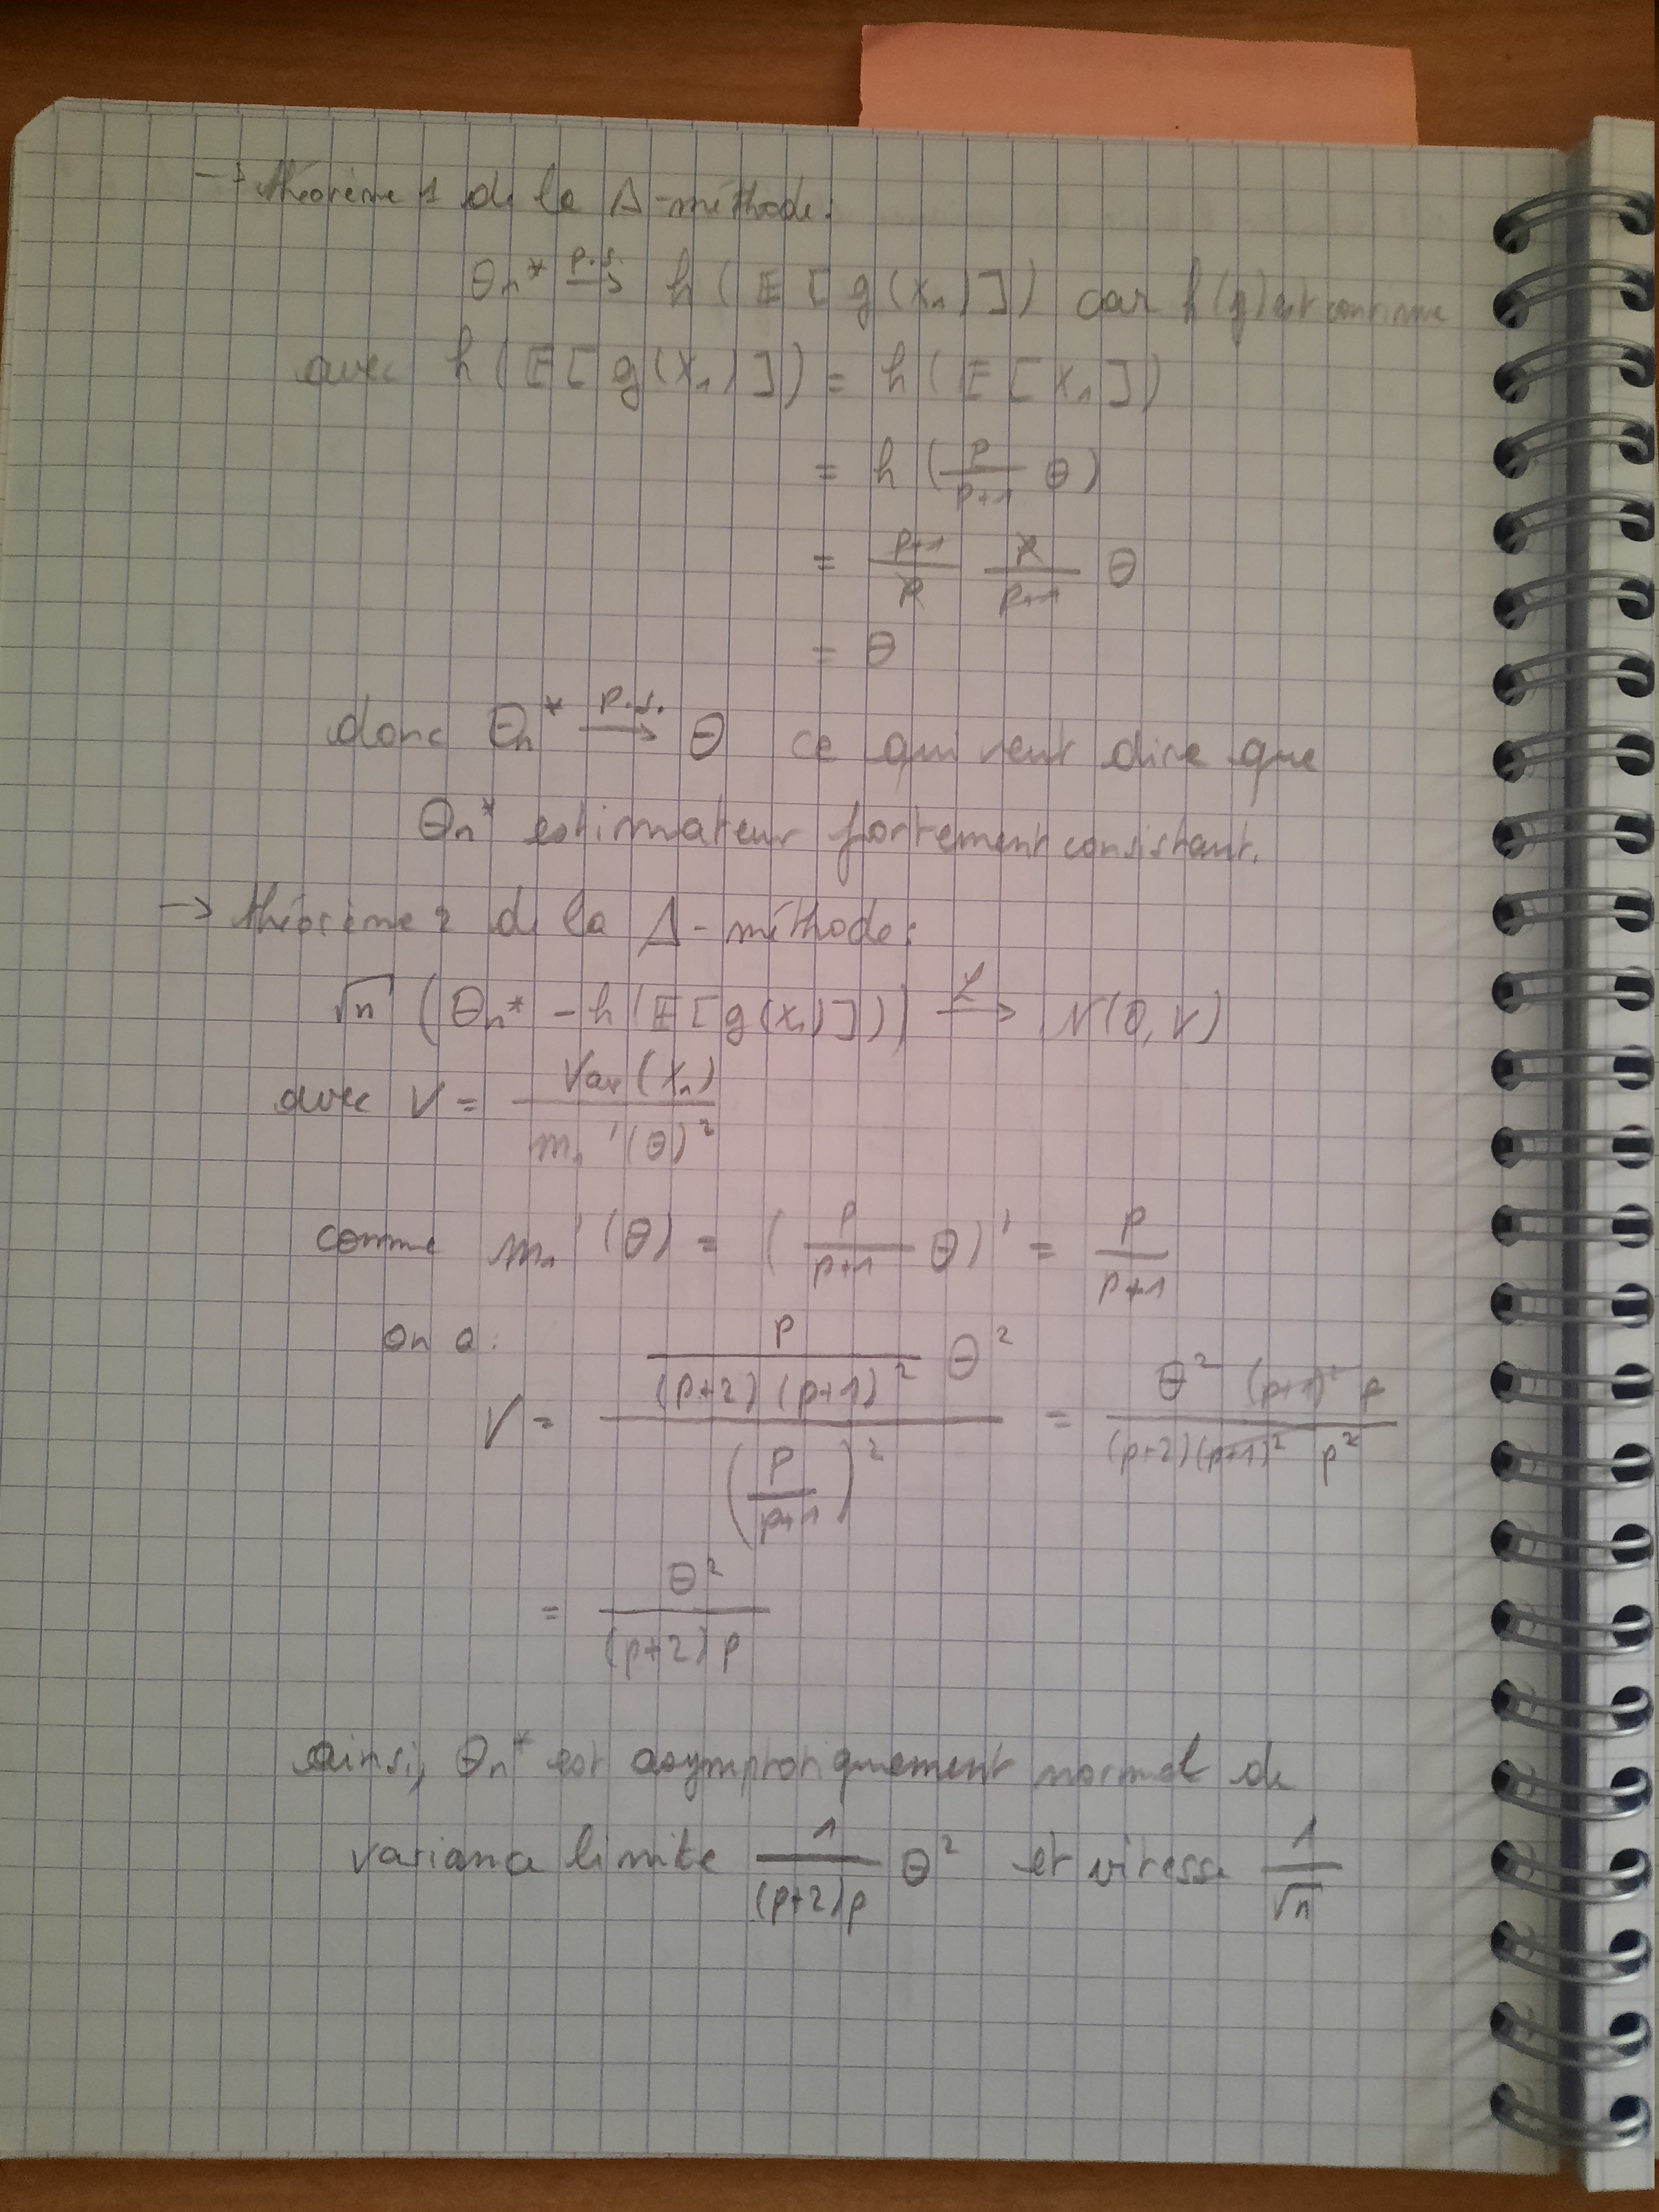 → théorème 1 de la Δ-méthode:
θn* p.s.→ h(E[g(X1)]) car h(y) est continue
avec h(E[g(X1)]) = h(E[X1])
= h(p/(p+1) θ)
= (p+1)/p p/(p+1) θ
= θ
donc θn* p.s.→ θ ce qui veut dire que
θn* estimateur fortement consistant.
→ théorème 2 de la Δ-méthode:
√n (θn* - h(E[g(X1)])) L→ N(0, V)
avec V = Var(X1) / m1'(θ)²
comme m1'(θ) = (p/(p+1) θ)' = p/(p+1)
on a:
V = (p/((p+2)(p+1)²) θ²) / (p/(p+1))² = θ² (p+1)² p / ((p+2)(p+1)² p²)
= θ² / ((p+2) p)
ainsi, θn* est asymptotiquement normal de
variance limite 1/((p+2)p) θ² et vitesse 1/√n